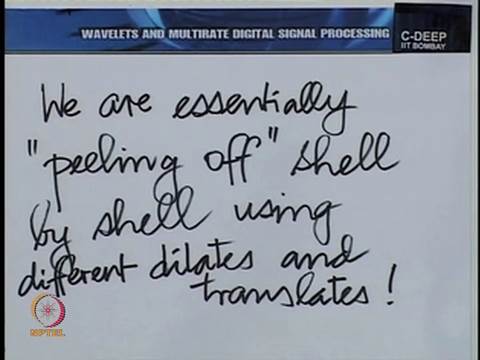 WAVELETS AND MULTIRATE DIGITAL SIGNAL PROCESSING
C-DEEP
IIT BOMBAY
We are essentially
"peeling off" shell
by shell using
different dilates and
translates!
NPTEL